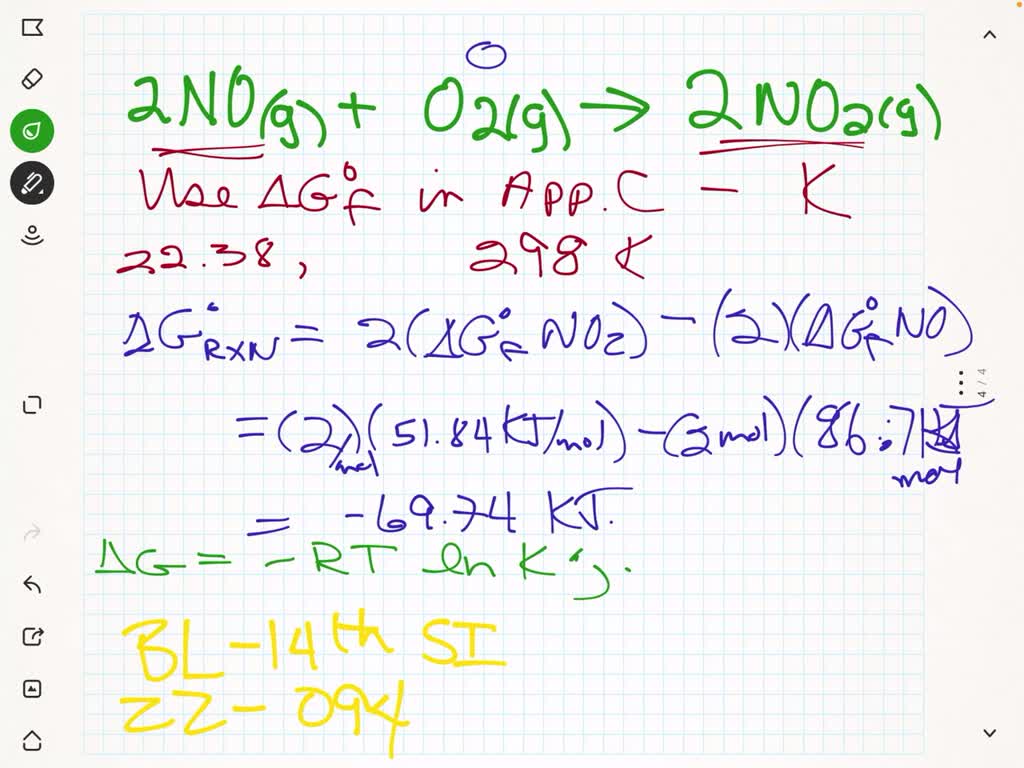 O
2NO(g) + O2(g) → 2NO2(g)
Use ΔG°f in App. C - K
22.38, 298 K
ΔG°RXN = 2(ΔG°f NO2) - (2)(ΔG°f NO)
= (2)/mol (51.84 KJ/mol) - (2 mol)(86.71 KJ/mol)
= -69.74 KJ.
4 / 4
ΔG = -RT ln K
BL-14th SI
ZZ-094